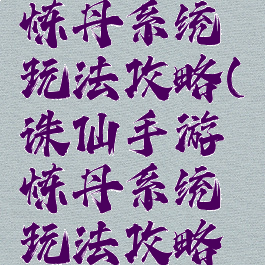 炼丹系统
玩法攻略(
诛仙手游
炼丹系统
玩法攻略